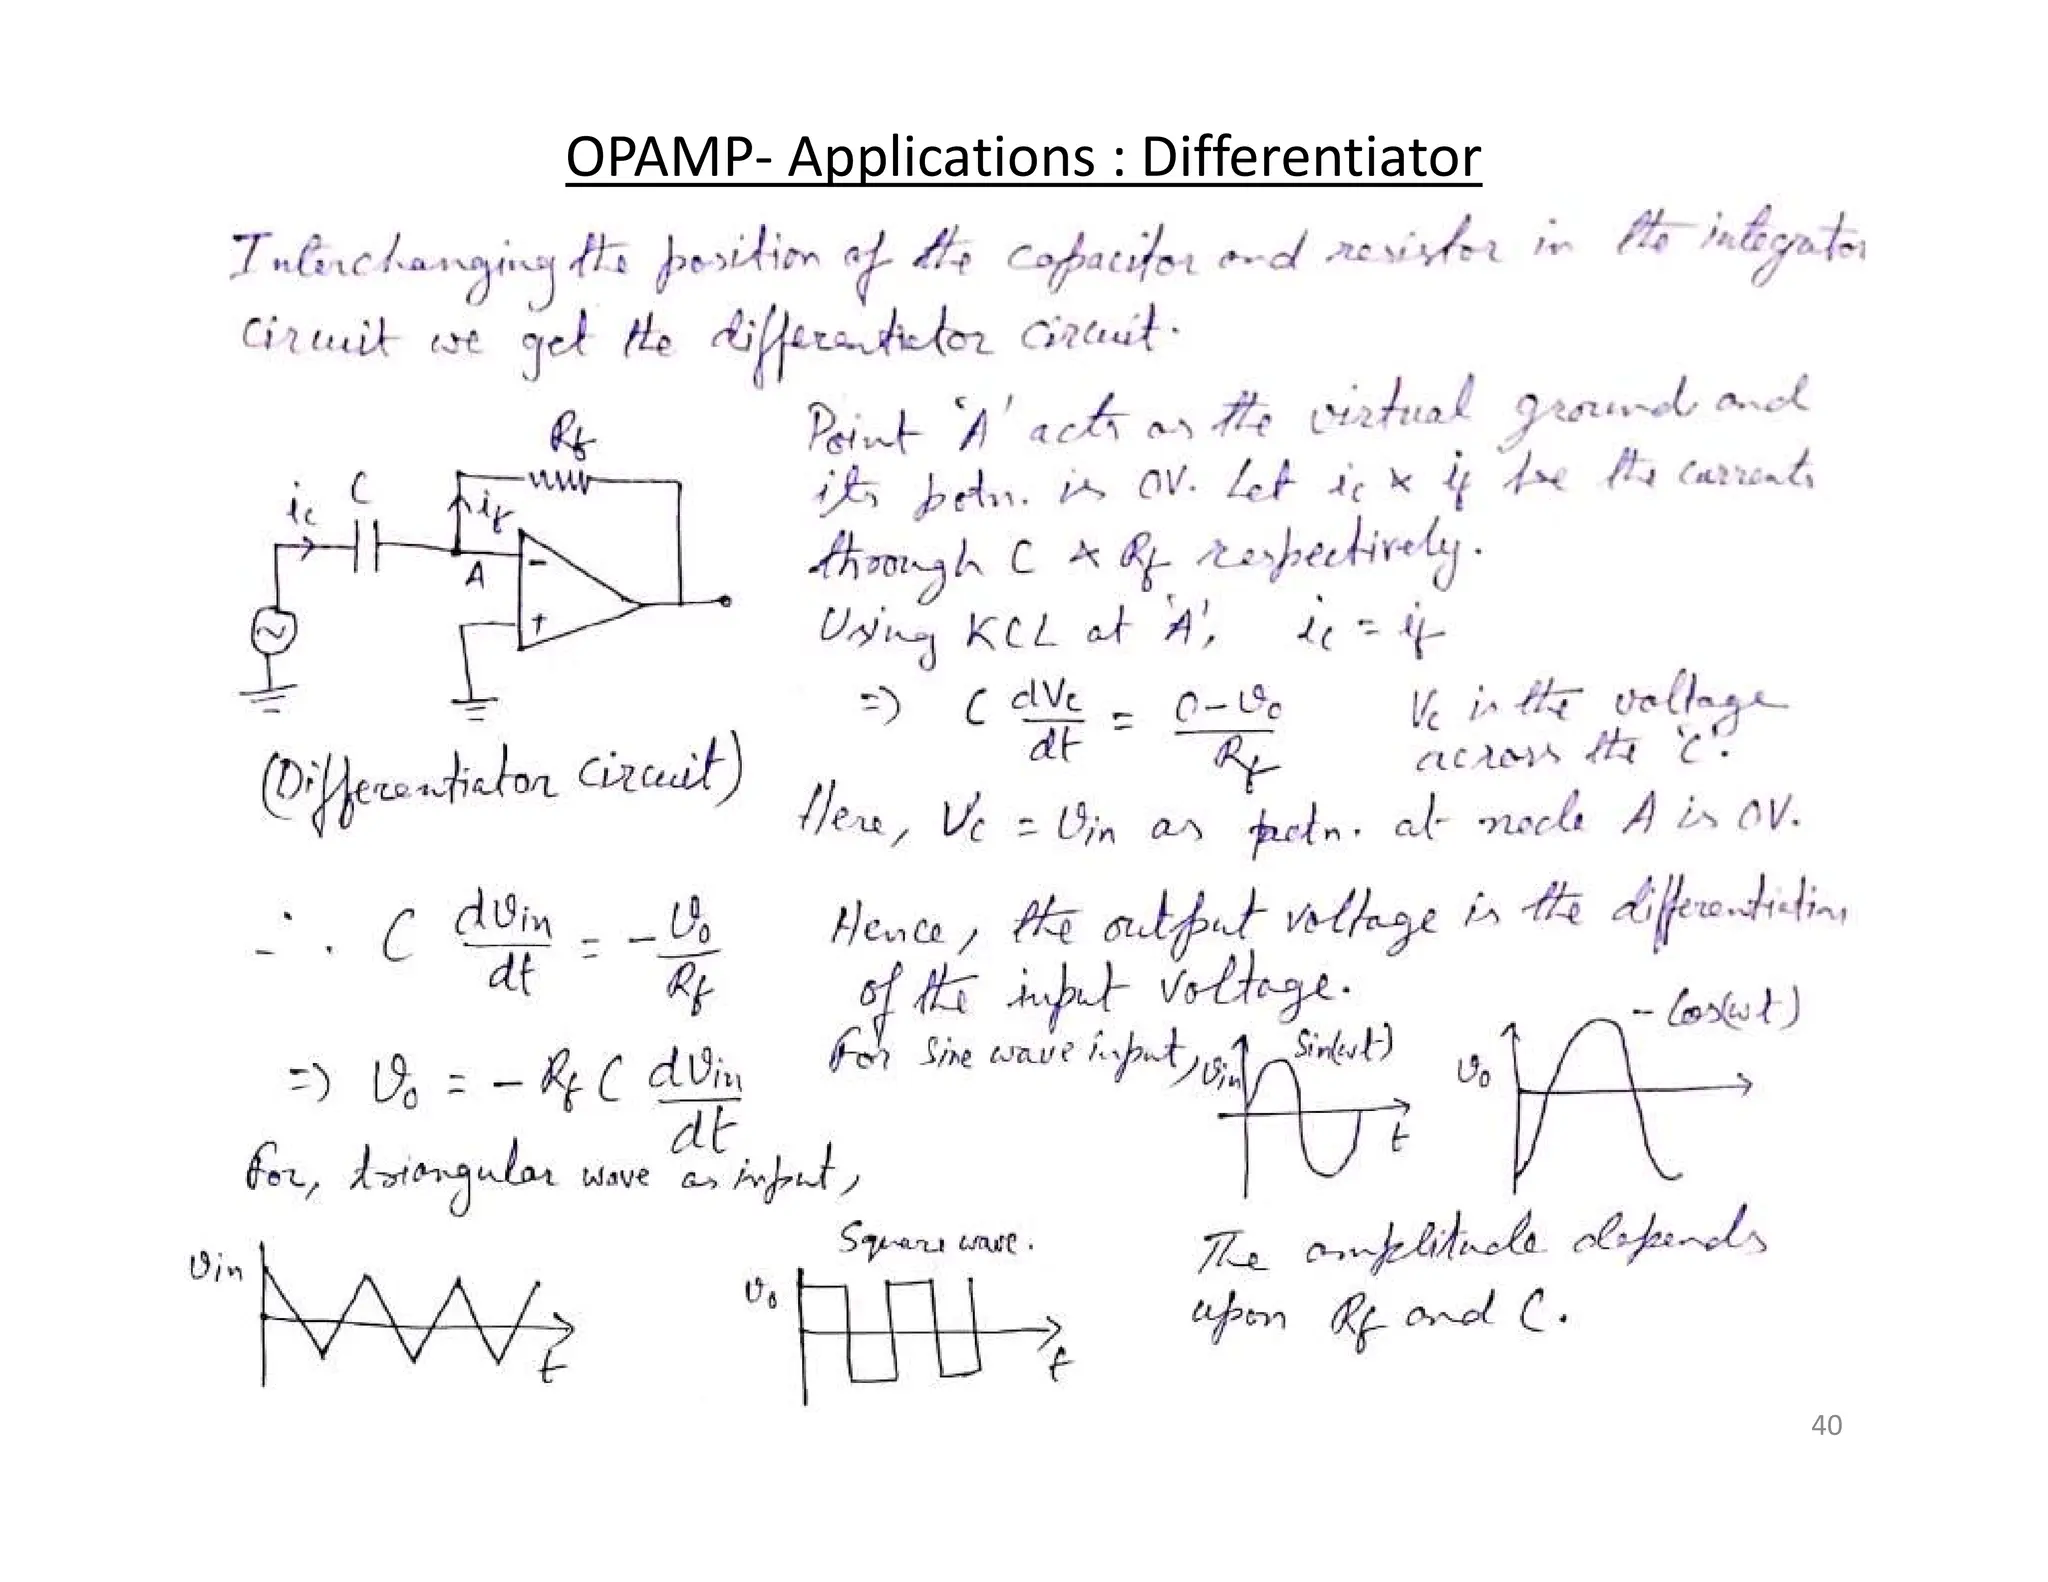 OPAMP- Applications : Differentiator
Interchanging the position of the capacitor and resistor in the integrator
circuit we get the differentiator circuit.
Rf
C
ic
if
A
-
+
(Differentiator circuit)
Point 'A' acts as the virtual ground and
its potn. is 0V. Let ic & if be the currents
through C & Rf respectively.
Using KCL at 'A', ic = if
=> C dVc/dt = 0-vo/Rf Vc is the voltage
across the 'C'.
Here, Vc = vin as potn. at node A is 0V.
∴ C dvin/dt = -vo/Rf
=> vo = - Rf C dvin/dt
Hence, the output voltage is the differentiation
of the input voltage.
For sine wave input,
vin
Sin(ωt)
t
vo
- Cos(ωt)
For, triangular wave as input,
vin
t
Square wave.
vo
t
The amplitude depends
upon Rf and C.
40